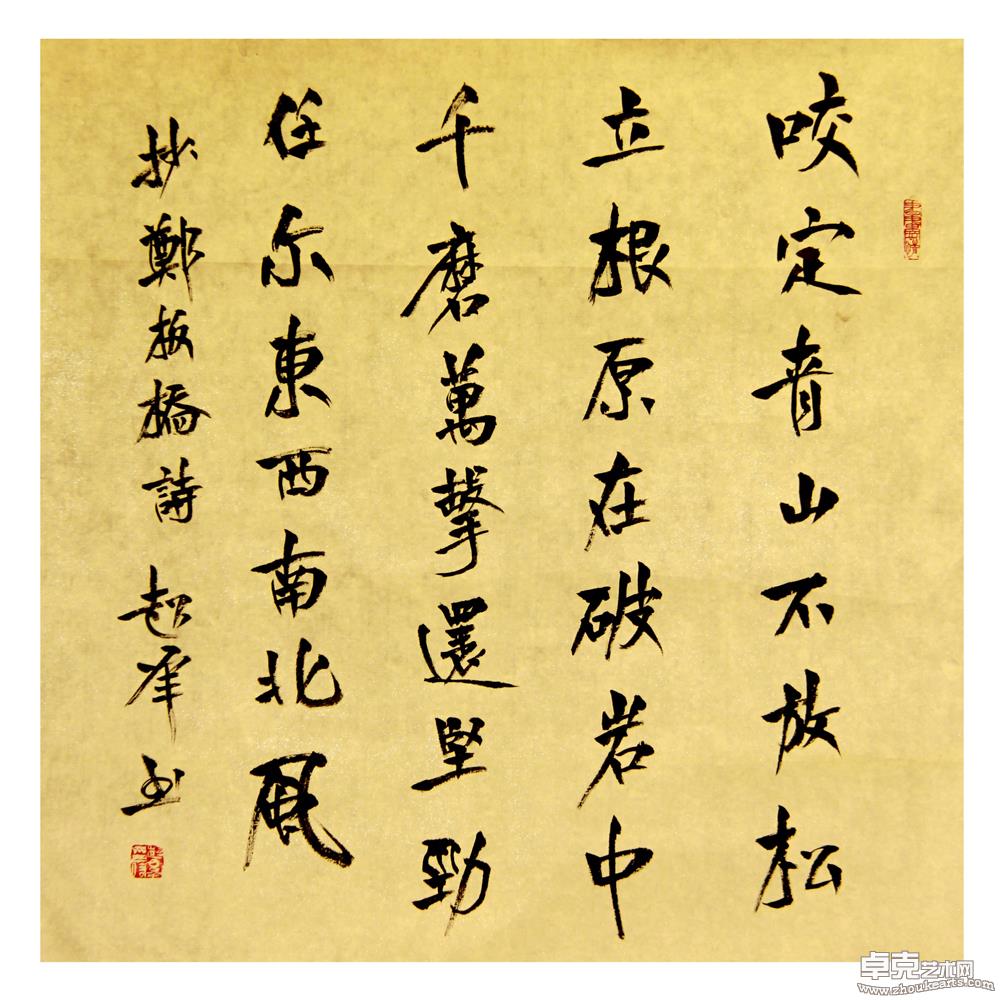 咬定青山不放松
立根原在破岩中
千磨萬擊還堅勁
任尔東西南北風
抄鄭板橋詩 超峰书
卓克艺术网
www.zhoukearts.com